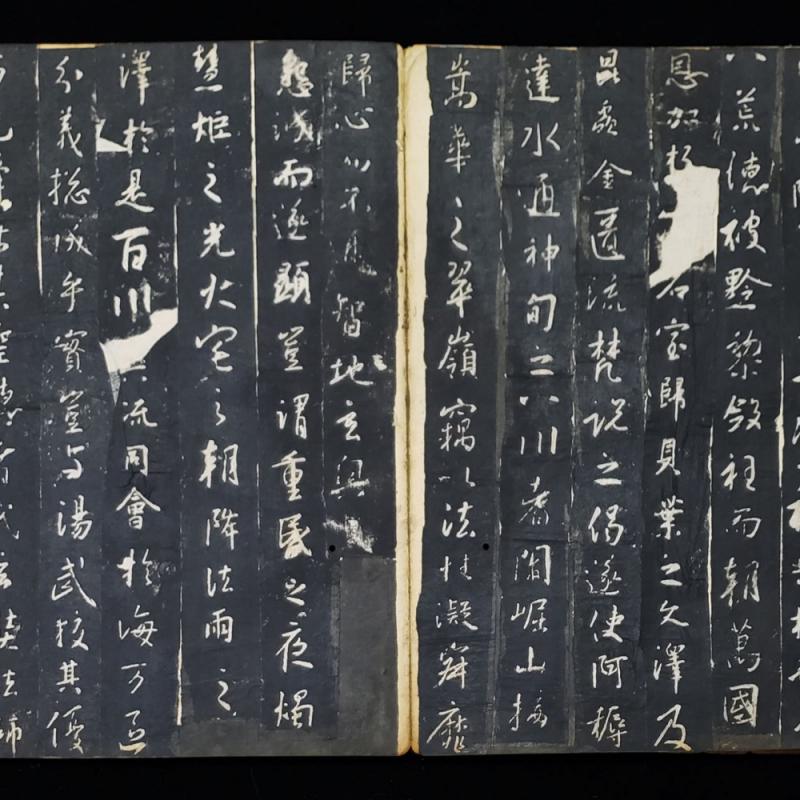 八荒德被黔黎斂衽而朝萬國
恩加朽石室歸貝葉之文澤及
昆蟲金匱流梵說之偈遂使阿耨
達水通神甸之八川耆闍崛山接
嵩華之翠嶺竊以法性凝寂靡
歸心而不智地玄奧
懇誠而遂顯豈謂重昬之夜燭
慧炬之光火宅之朝降法雨之
澤於是百川流同會於海万區
分義捴成乎實豈与湯武校其優
其聖德者哉玄奘法師